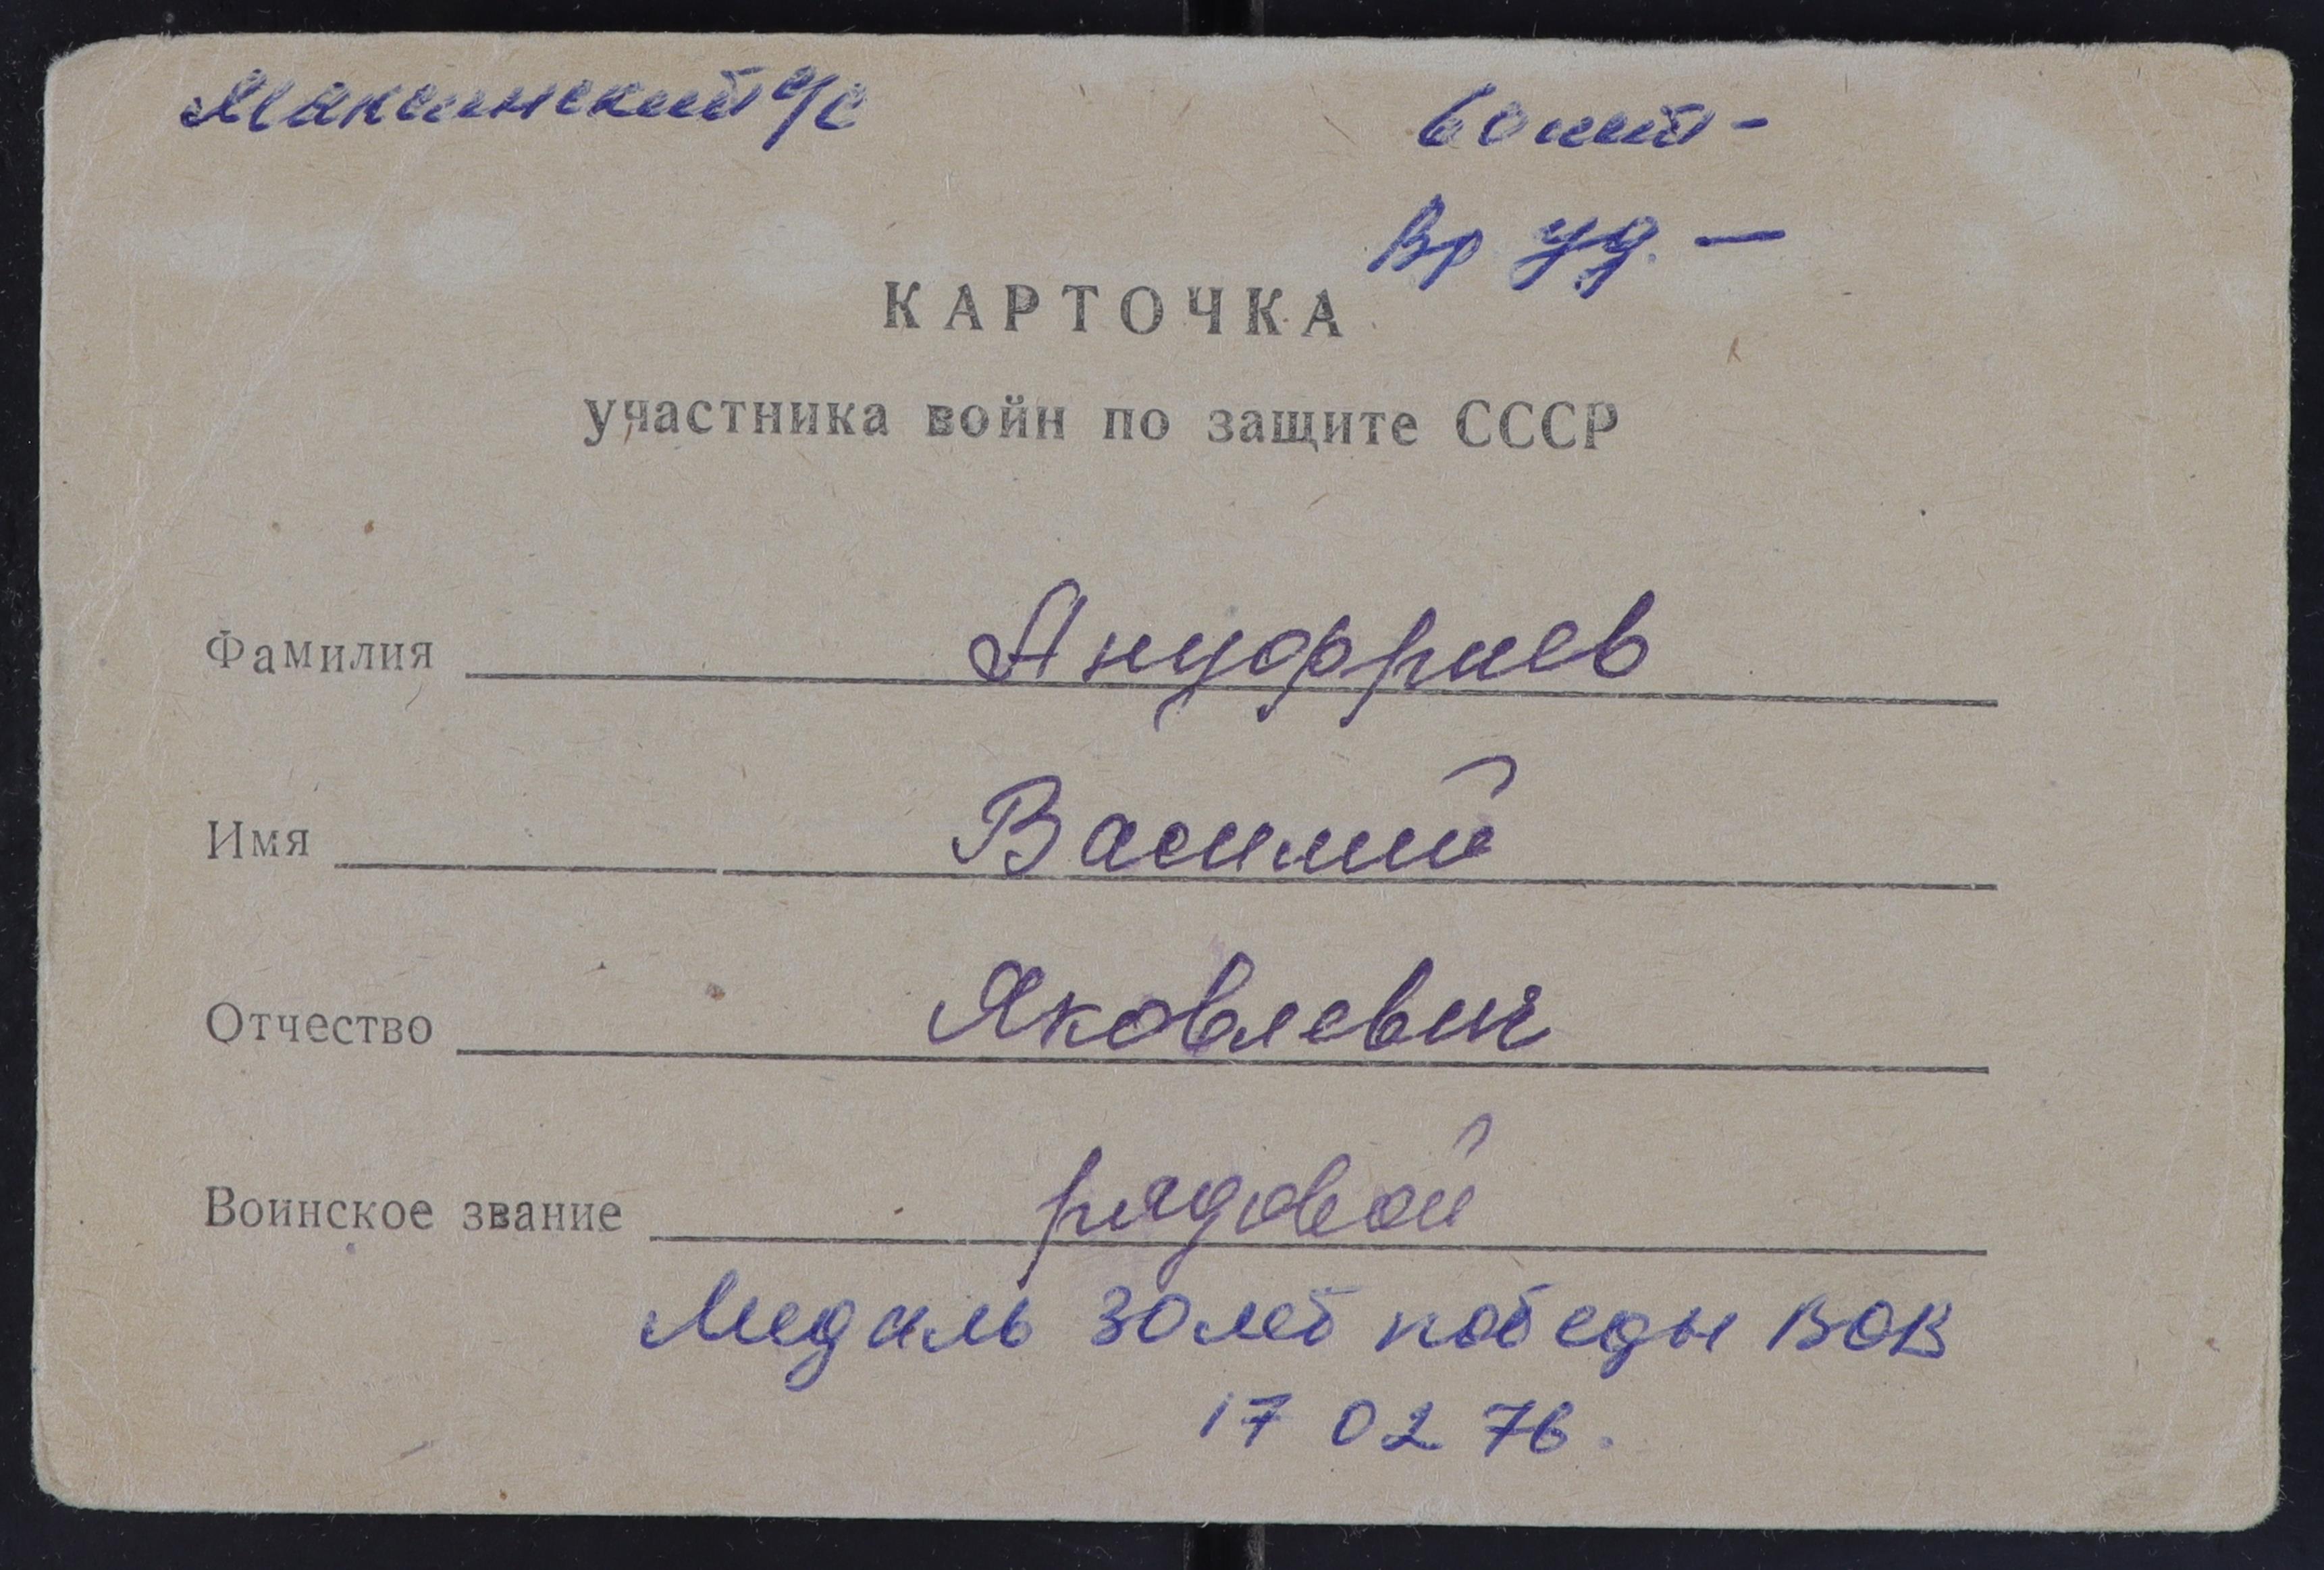 Максинский с/с
60 лет -
Вр уд. —
КАРТОЧКА
участника войн по защите СССР
Фамилия Ануфриев
Имя Василий
Отчество Яковлевич
Воинское звание рядовой
Медаль 30 лет победы ВОВ
17 02 76.